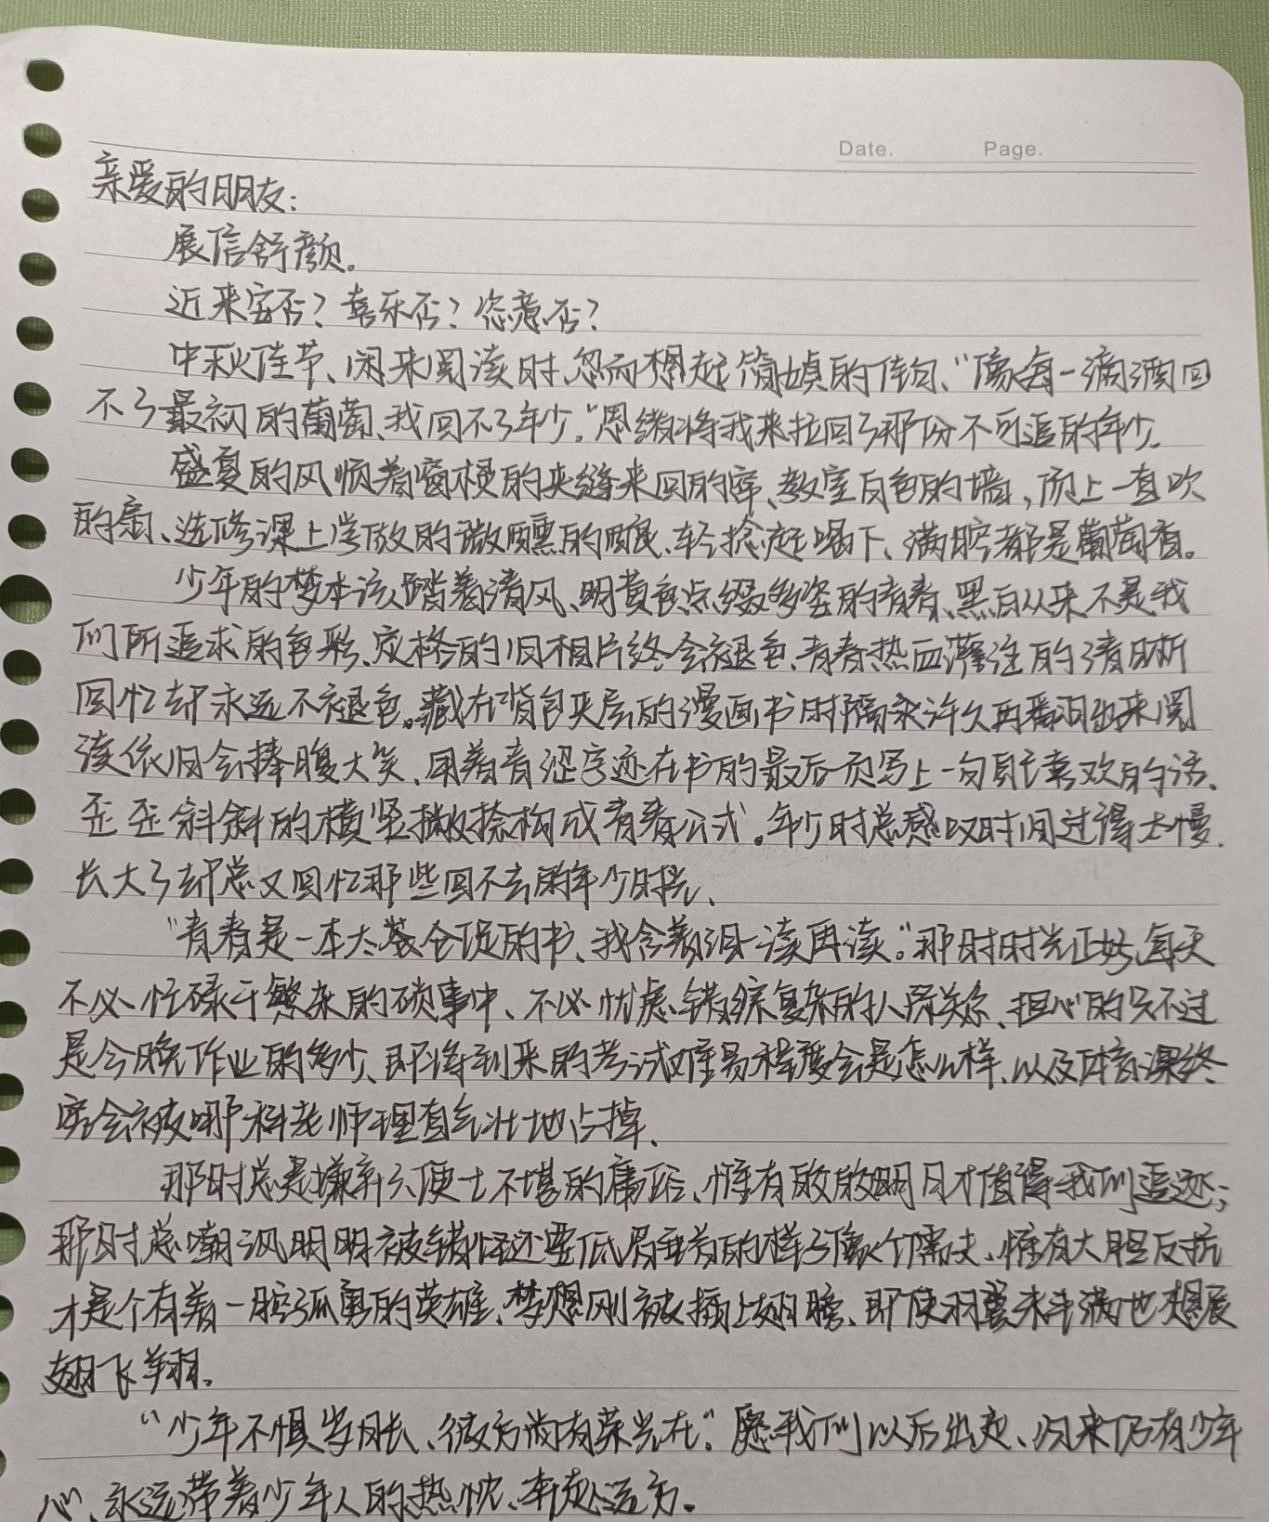 Date. Page.
亲爱的朋友：
展信舒颜。
近来安否？喜乐否？恣意否？
中秋佳节、闲来阅读时、忽而想起简媜的佳句、“像每一滴酒回
不了最初的葡萄、我回不了年少。”思绪将我来拉回了那份不可追的年少。
盛夏的风顺着窗楼的夹缝来回的窜、教室白色的墙，顶上一直吹
的扇、选修课上学放的微醺的酿、轻捻起喝下、满腔都是葡萄香。
少年的梦本该踏着清风、明黄色点缀多姿的青春、黑白从来不是我
们所追求的色彩、定格的旧相片终会褪色、青春热血灌注的清晰
回忆却永远不褪色。藏在背包夹层的漫画书时隔许久再翻阅出来阅
读依旧会捧腹大笑、用着青涩字迹在书的最后一页写上一句最喜欢的话、
歪歪斜斜的横竖撇捺构成青春公式。年少时总感叹时间过得太慢、
长大了却总又回忆那些回不去的年少时光、
“青春是一本太仓促的书、我含着泪一读再读。”那时时光正好、每天
不必忙碌于繁杂的琐事中、不必忧虑错综复杂的人际关系、担心的只不过
是今晚作业的多少、即将到来的考试难易程度会是怎么样、以及体育课终
究会被哪科老师理直气壮地占掉、
那时总是嫌弃六便士不堪的庸俗、惟有皎皎明月才值得我们追逐；
那时总嘲讽明明被错怪还要低眉垂首的样子像个懦夫、惟有大胆反抗
才是个有着一腔孤勇的英雄、梦想刚被插上翅膀、即使羽翼未丰满也想展
翅飞翔。
“少年不惧岁月长、彼方尚有荣光在”愿我们以后出走、归来仍有少年
心、永远带着少年人的热忱、奔赴远方。